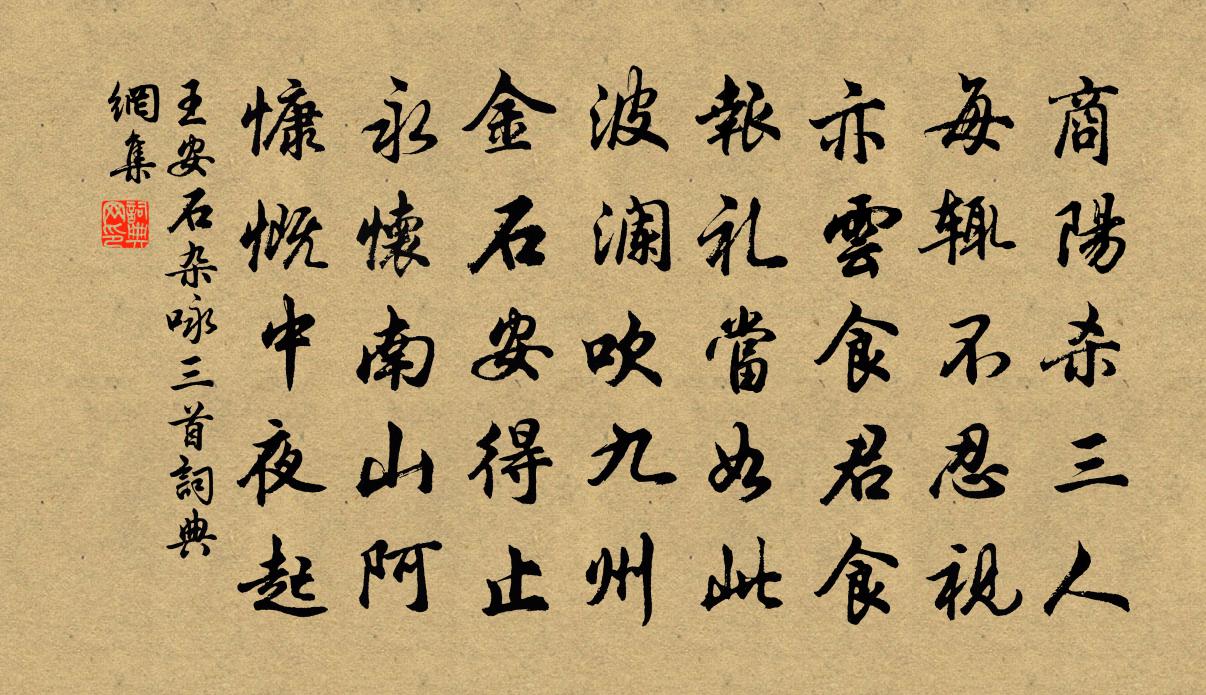 商陽杀三人
每辄不忍视
亦雲食君食
報礼當如此
波澜吹九州
金石安得止
永懷南山阿
慷慨中夜起
王安石杂咏三首詞典
網集
詞典
网印